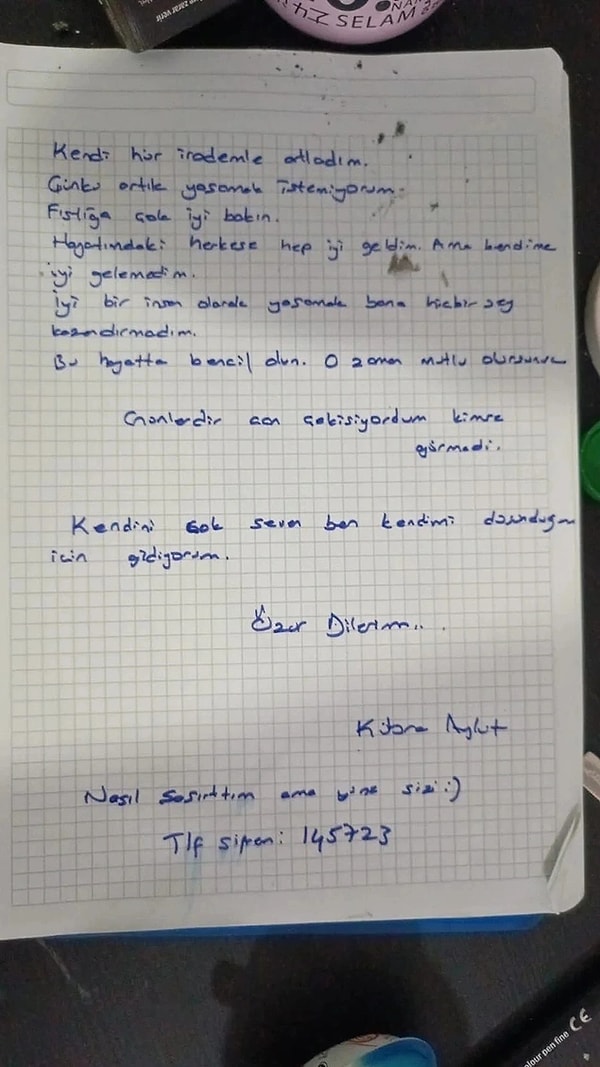 SELAM
Kendi hür irademle atladım.
Çünkü artık yaşamak istemiyorum.
Fıstığa çok iyi bakın.
Hayatımdaki herkese hep iyi geldim. Ama kendime
iyi gelemedim.
İyi bir insan olarak yaşamak bana hiçbir şey
kazandırmadım.
Bu hayatta bencil olun. O zaman mutlu olursunuz
Günlerdir can çekişiyordum kimse
görmedi.
Kendini çok seven ben kendimi düşündüğüm
için gidiyorum.
Özür Dilerim...
Kübra Aykut
Nasıl şaşırttım ama yine sizi :)
Tlf şifren: 145723
olour pen fine CE